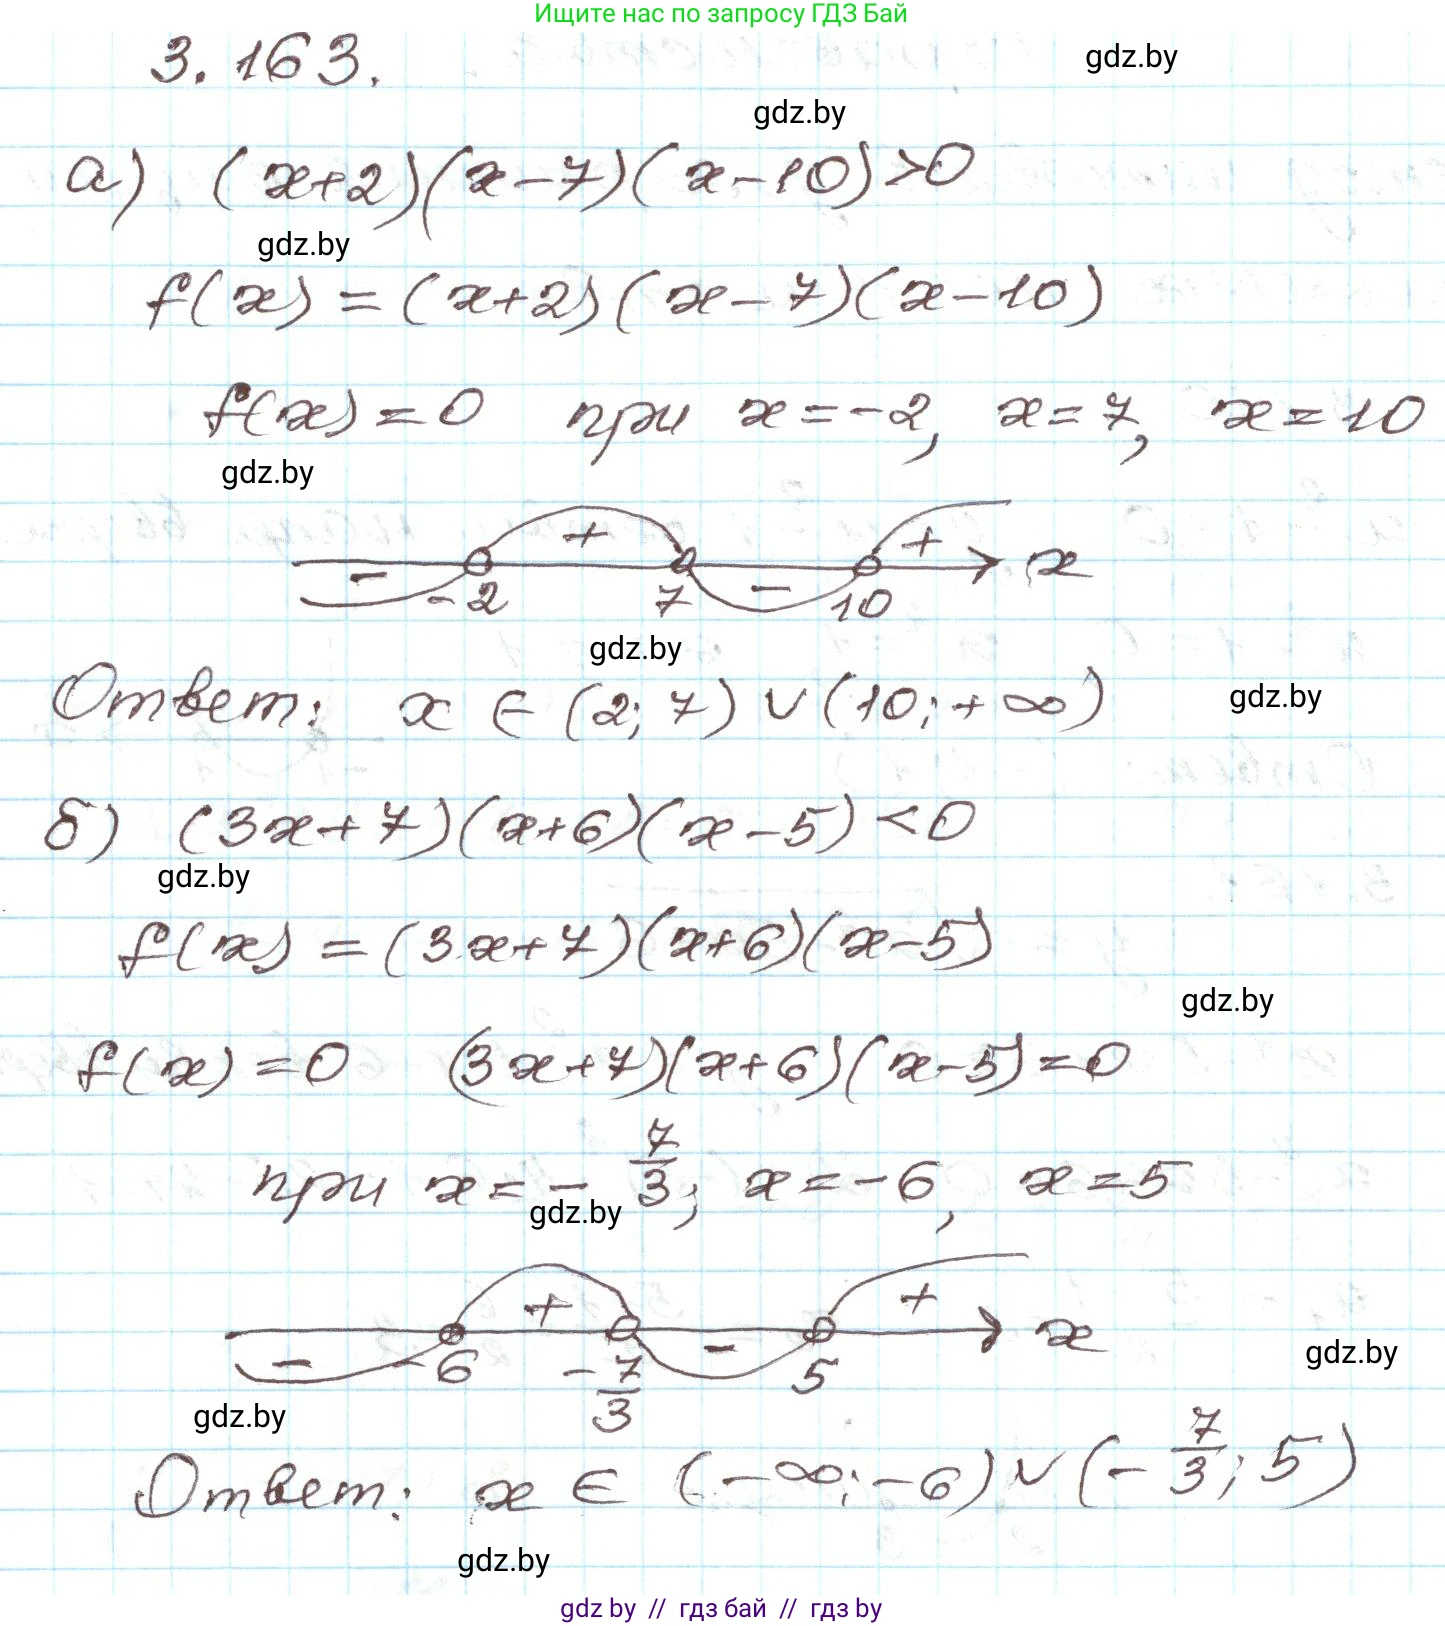 Ищите нас по запросу ГДЗ Бай
3.163.
gdz.by
gdz.by
а) (x+2)(x-7)(x-10)>0
gdz.by
f(x)=(x+2)(x-7)(x-10)
f(x)=0 при x=-2, x=7, x=10
gdz.by
- + - + x
-2 7 10
gdz.by
Ответ: x ∈ (2; 7) ∪ (10; +∞)
gdz.by
б) (3x+7)(x+6)(x-5)<0
gdz.by
f(x)=(3x+7)(x+6)(x-5)
gdz.by
f(x)=0 (3x+7)(x+6)(x-5)=0
при x=-7/3; x=-6, x=5
gdz.by
- + - + x
-6 -7/3 5
gdz.by
gdz.by
Ответ: x ∈ (-∞; -6) ∪ (-7/3; 5)
gdz.by
gdz by // гдз бай // гдз by